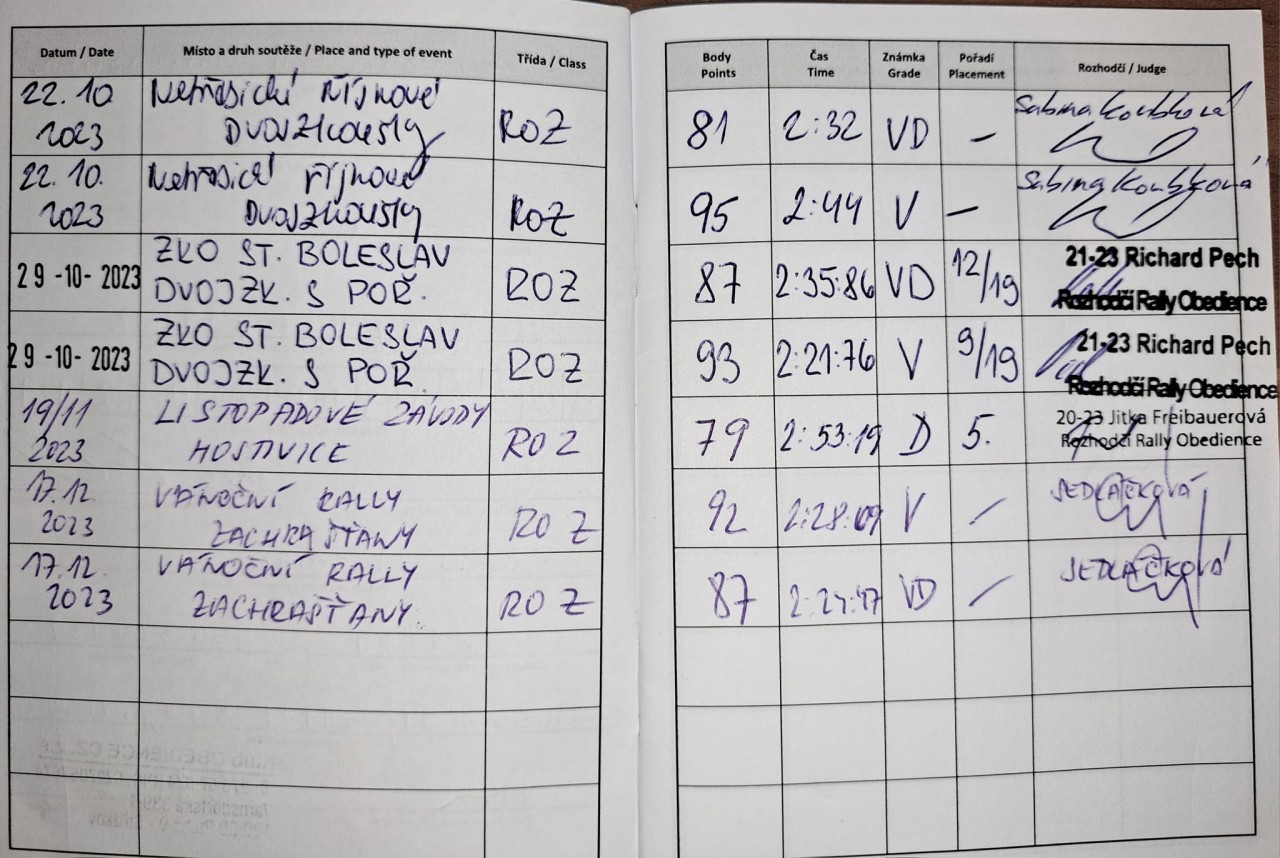 Datum / Date Místo a druh soutěže / Place and type of event Třída / Class Body Points Čas Time Známka Grade Pořadí Placement Rozhodčí / Judge
22. 10 2023 říjnové ROZ 81 2:32 VD – Sabina Koubková
22. 10. 2023 říjnové ROZ 95 2:44 V – Sabina Koubková
29 -10- 2023 ZKO ST. BOLESLAV DVOJZK. S POŘ. ROZ 87 2:35:86 VD 12/19 21-23 Richard Pech Rozhodčí Rally Obedience
29 -10- 2023 ZKO ST. BOLESLAV DVOJZK. S POŘ. ROZ 93 2:21:76 V 9/19 21-23 Richard Pech Rozhodčí Rally Obedience
19/11 2023 LISTOPADOVÉ ZÁVODY HOSTIVICE RO Z 79 2:53:19 D 5. 20-23 Jitka Freibauerová Rozhodčí Rally Obedience
17.12. 2023 VÁNOČNÍ RALLY ZACHRAŠŤANY RO Z 92 2:28:09 V / JEDLIČKOVÁ
17.12. 2023 VÁNOČNÍ RALLY ZACHRAŠŤANY RO Z 87 VD / JEDLIČKOVÁ